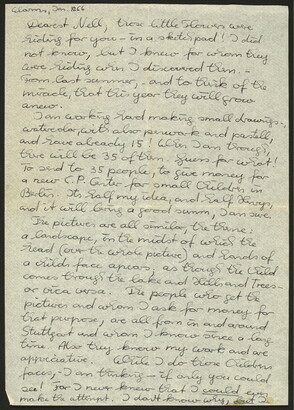 Glarus, Jan. 1966
Dearest Nell, these little flowers were
hiding for you – in a sketchpad! I did
not know, but I knew for whom they
were hiding when I discovered them. –
From last summer, – and to think of the
miracle, that this year they will grow
anew.
I am working hard making small drawings –,
watercolor, with also penwork and pastell,
and have already 15! When I am through,
there will be 35 of them. Guess for what!
To send to 35 people, to give money for
a new C.P. Center for small Children in
Berlin. Its half my idea, and half
and it will bring a good summ, I am sure.
The pictures are all similar, the theme:
a landscape, in the midst of which the
head (over the whole picture) and hands of
a childs face apears, as though the Child
comes through the lake and hills and Trees –
or vica versa. The people who get the
pictures and whom I ask for money for
that purpose, are all from in and around
Stuttgart and whom I know since a long
time. Also they know my work and are
appriciative. While I do those Children
faces, – I am thinking – if only you could
see! For I never knew that I could even
make the attempt. I don't know why, but